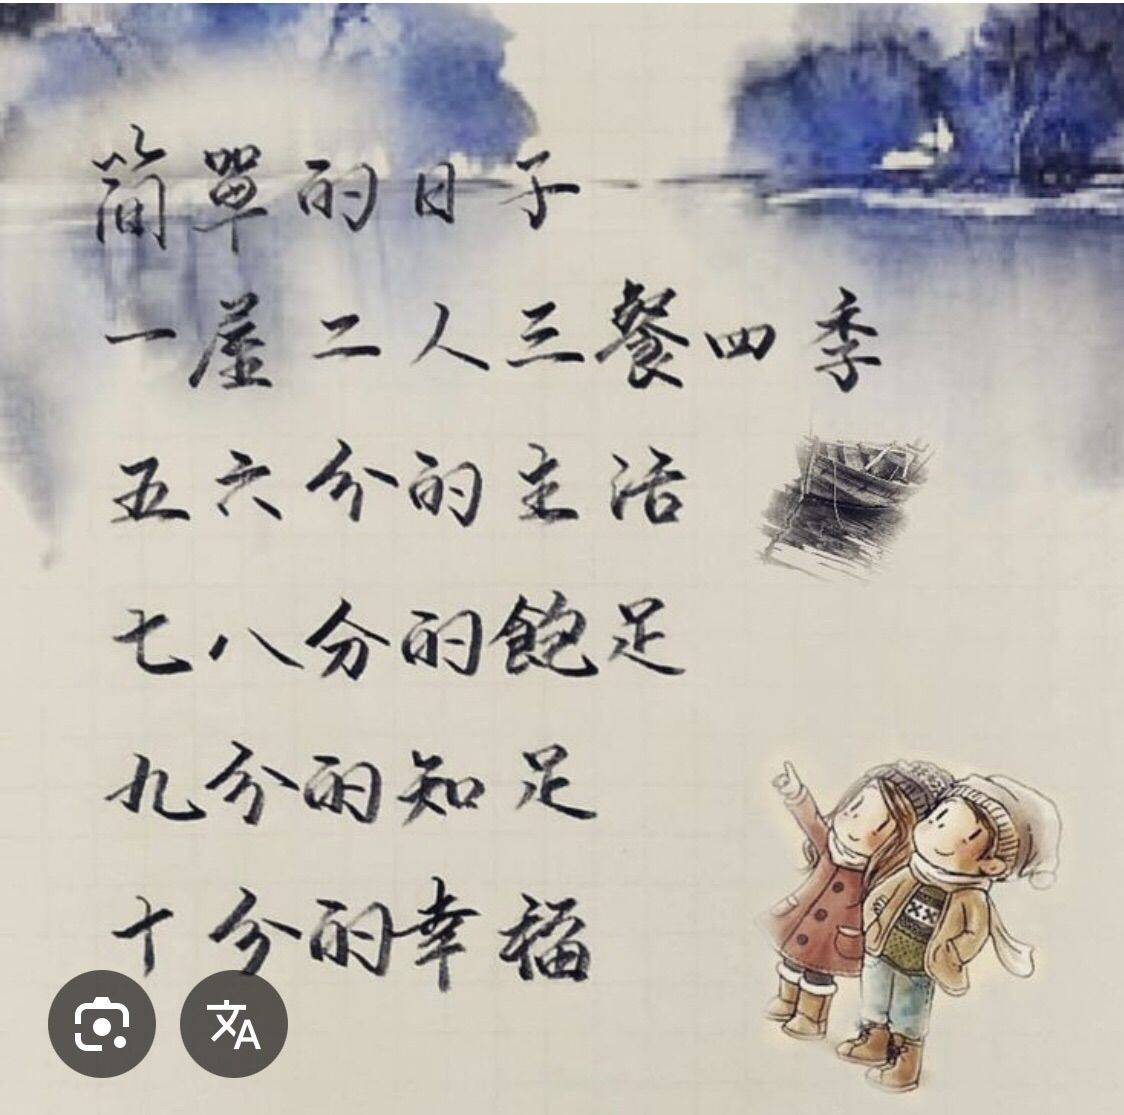 簡單的日子
一屋二人三餐四季
五六分的生活
七八分的飽足
九分的知足
十分的幸福
文A